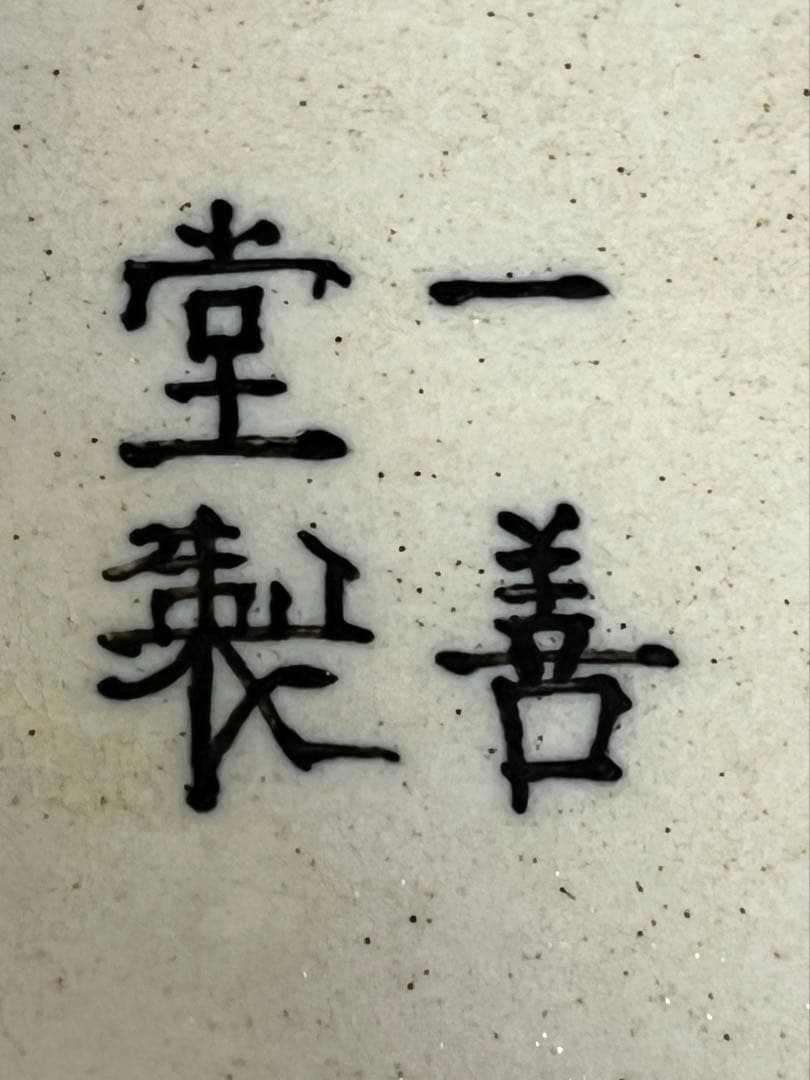 一善
堂製